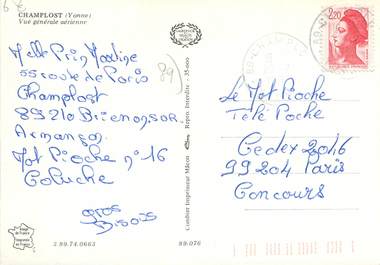 6 €
CHAMPLOST (Yonne)
Vue générale aérienne
Melle Prin Nadine
55 route de Paris
Champlost
89210 Brienon sur
Armançon
Mot Pioche n° 16
Coluche
gros
Bisous
89
Combier Imprimeur Mâcon
Repro. Interdite - 35-600
3 89.74.0663
89-076
2,20
Le Mot Pioche
Télé Poche
Cedex 2046
99204 Paris
Concours